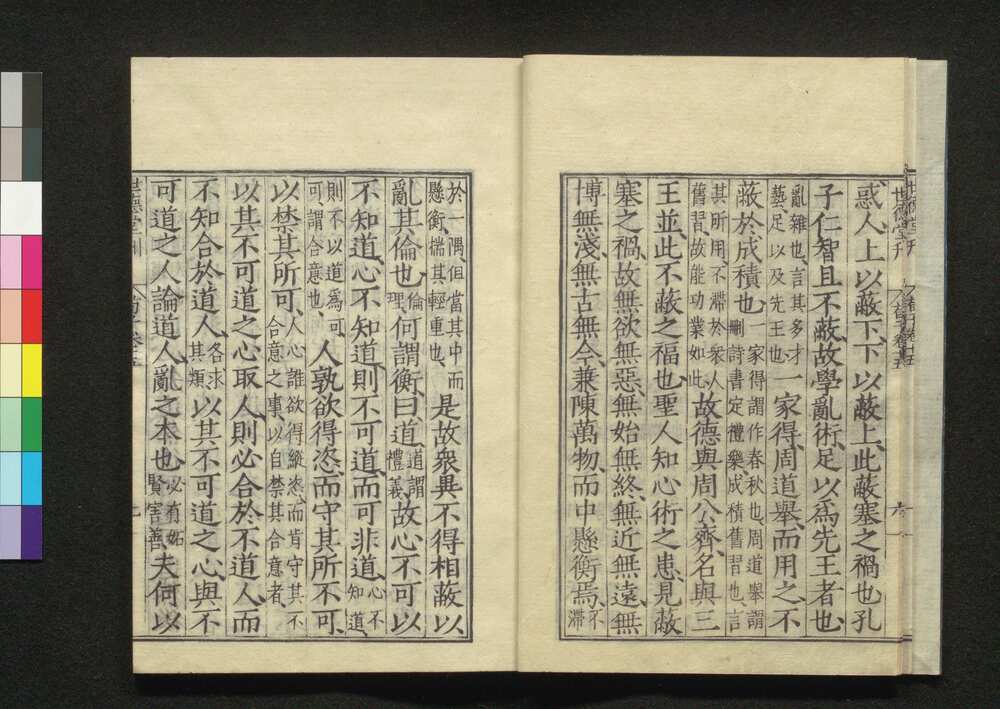 惑人上以蔽下下以蔽上此蔽塞之禍也孔
子仁智且不蔽故學亂術足以為先王者也
亂雜也言其多才
藝足以及先王也
一家得周道舉而用之不
蔽於成積也
一家得謂作春秋也周道舉謂
刪詩書定禮樂成積舊習也言
其所用不滯於衆人
舊習故能功業如此
故德與周公齊名與三
王並此不蔽之福也聖人知心術之患見蔽
塞之禍故無欲無惡無始無終無近無遠無
博無淺無古無今兼陳萬物而中懸衡焉
不
滯
於一隅但當其中而
懸衡揣其輕重也
是故衆異不得相蔽以
亂其倫也
倫
理
何謂衡曰道
道謂
禮義
故心不可以
不知道心不知道則不可道而可非道
心不
知道
則不以道為可
可謂合意也
人孰欲得恣而守其所不可
以禁其所可
人心誰欲得縱恣而肯守其不
合意之事以自禁其合意者
以其不可道之心取人則必合於不道人而
不知合於道人
各求
其類
以其不可道之心與不
可道之人論道人亂之本也
必有妬
賢害善
夫何以
世德堂刊
六